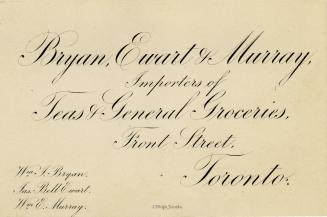 Bryan, Ewart & Murray,
Importers of
Teas & General Groceries,
Front Street,
Toronto.
Wm. T. Bryan.
Jas. Bell Ewart.
Wm. E. Murray.